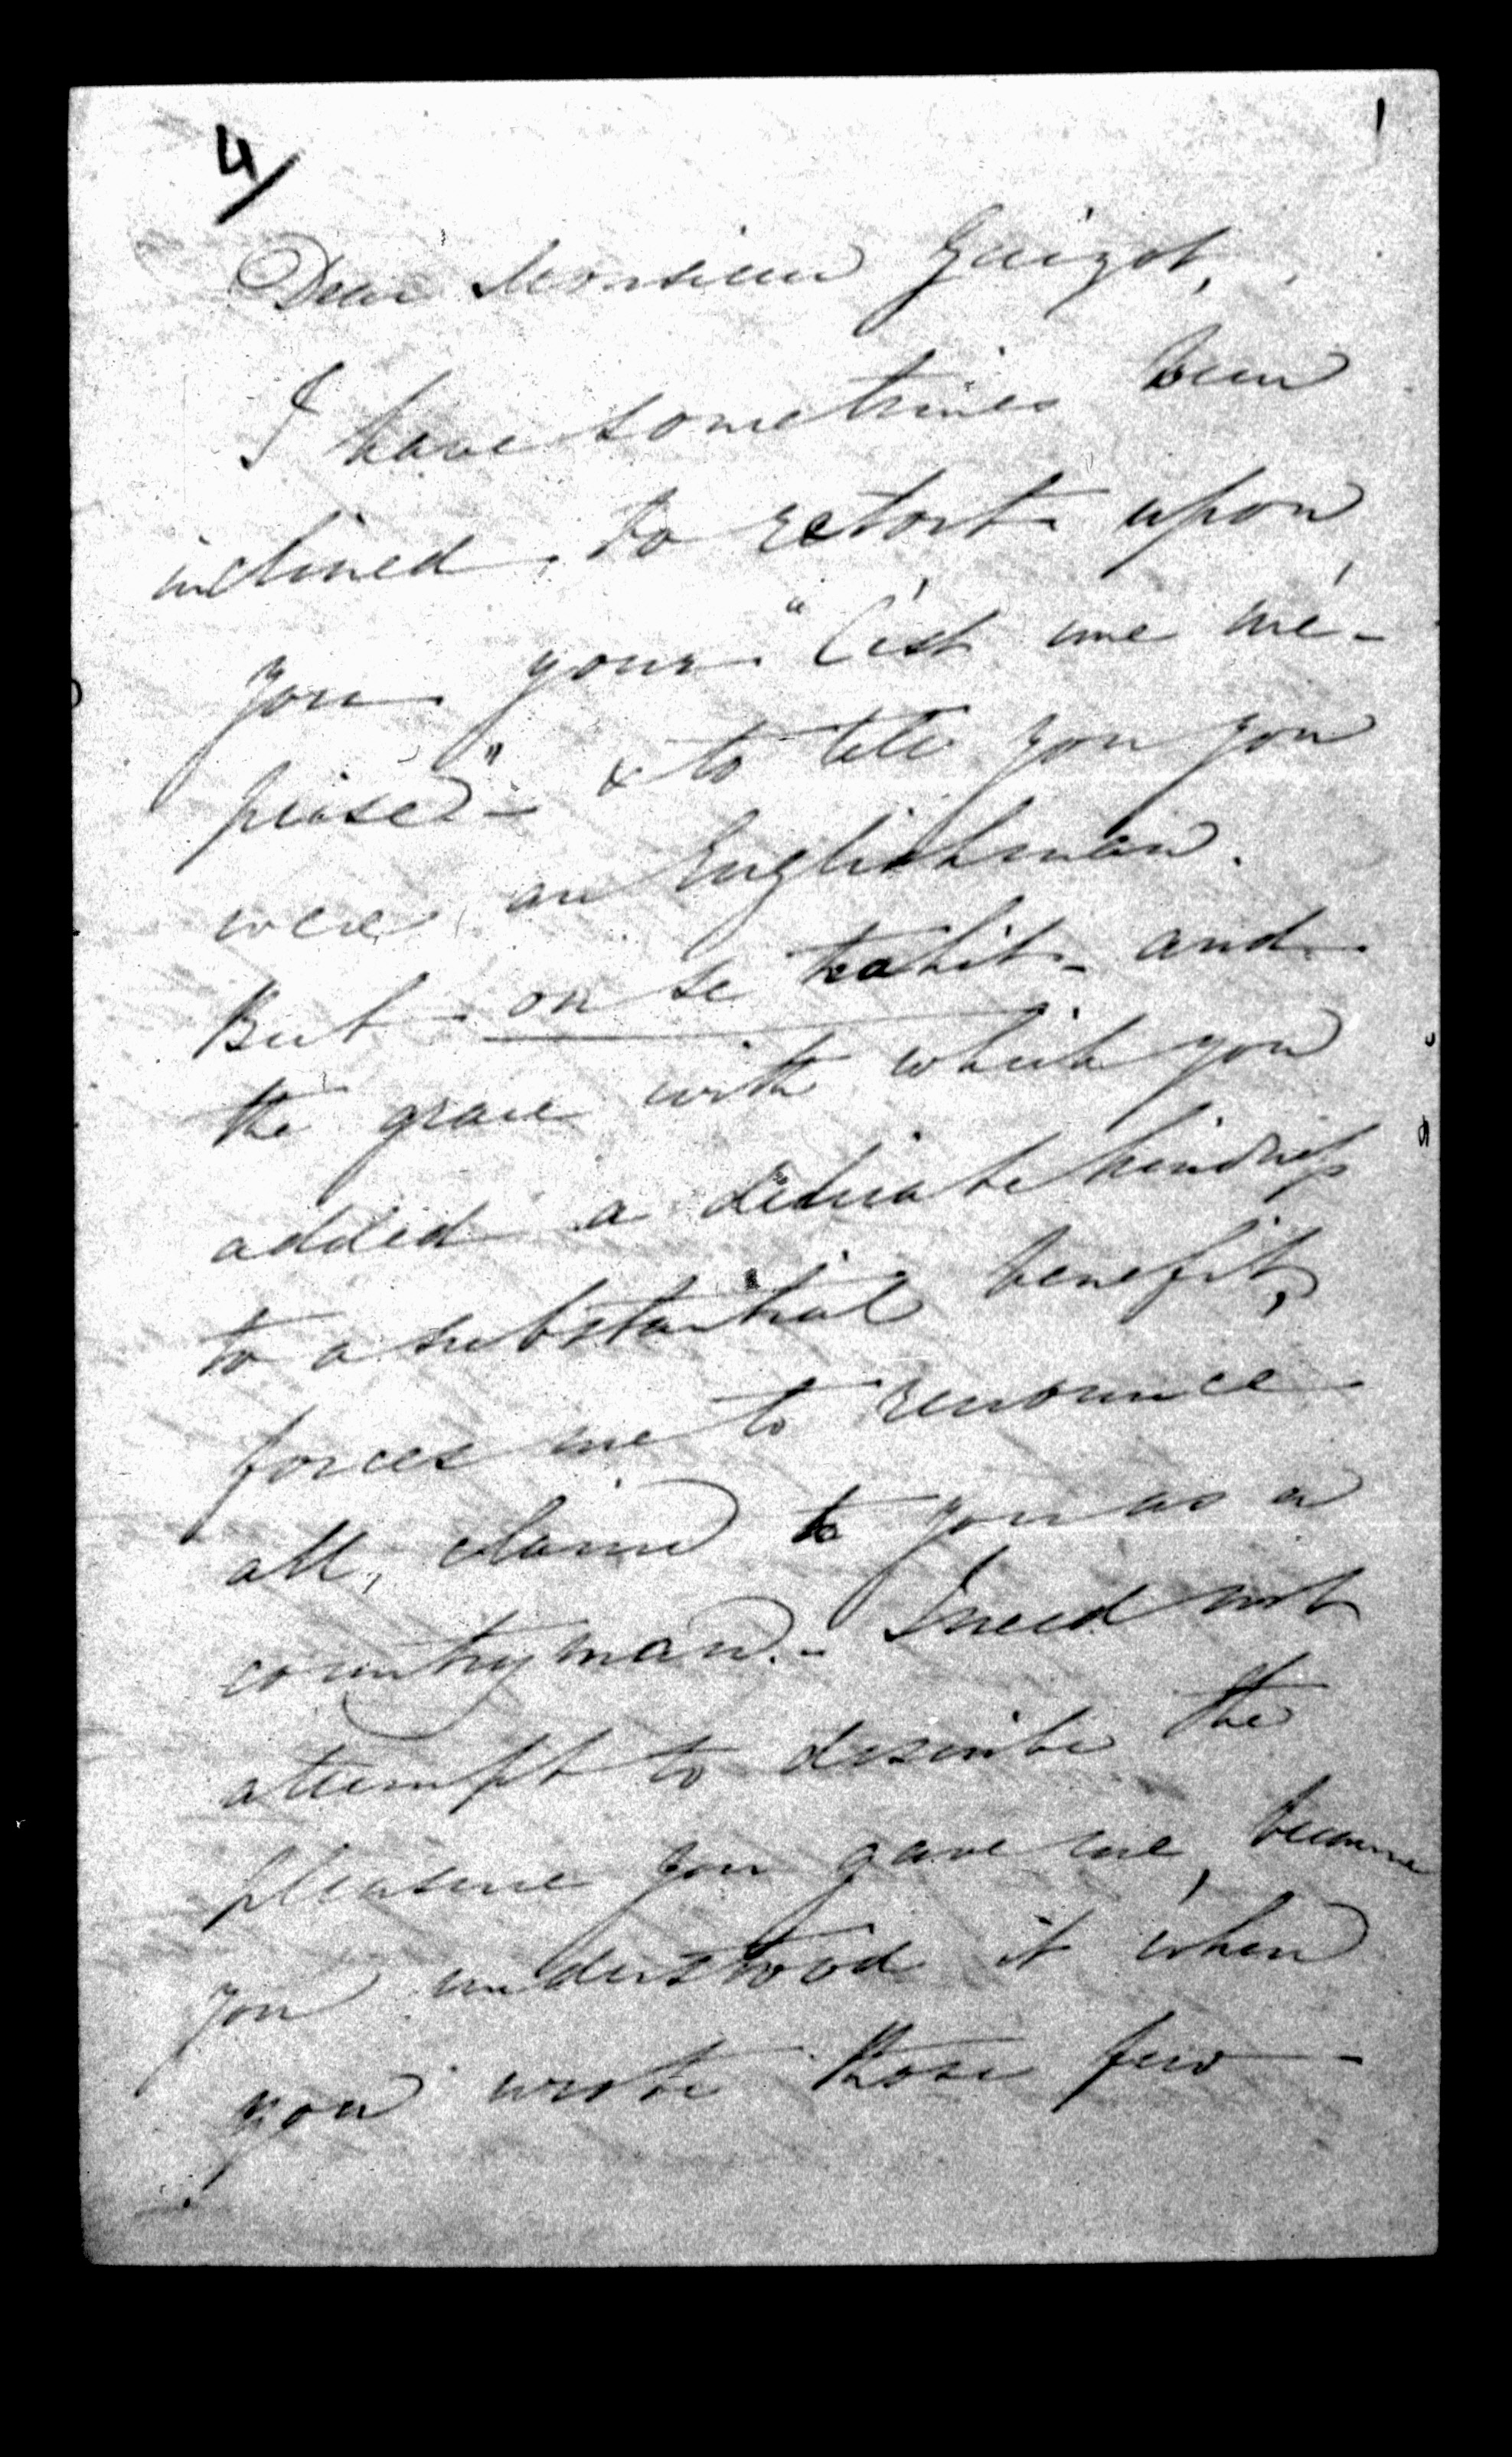 4/
1
Dear Monsieur Guizot,
I have sometimes been
inclined to retort upon
you your "C'est une mé-
prise" - & to tell you you
were an Englishman.
But on se trahit - and
the grace with which you
added a delicate kindness
to a substantial benefit,
forces me to renounce
all claim to you as a
countryman. - I need not
attempt to describe the
pleasure you gave me, because
you understood it when
you wrote those few -